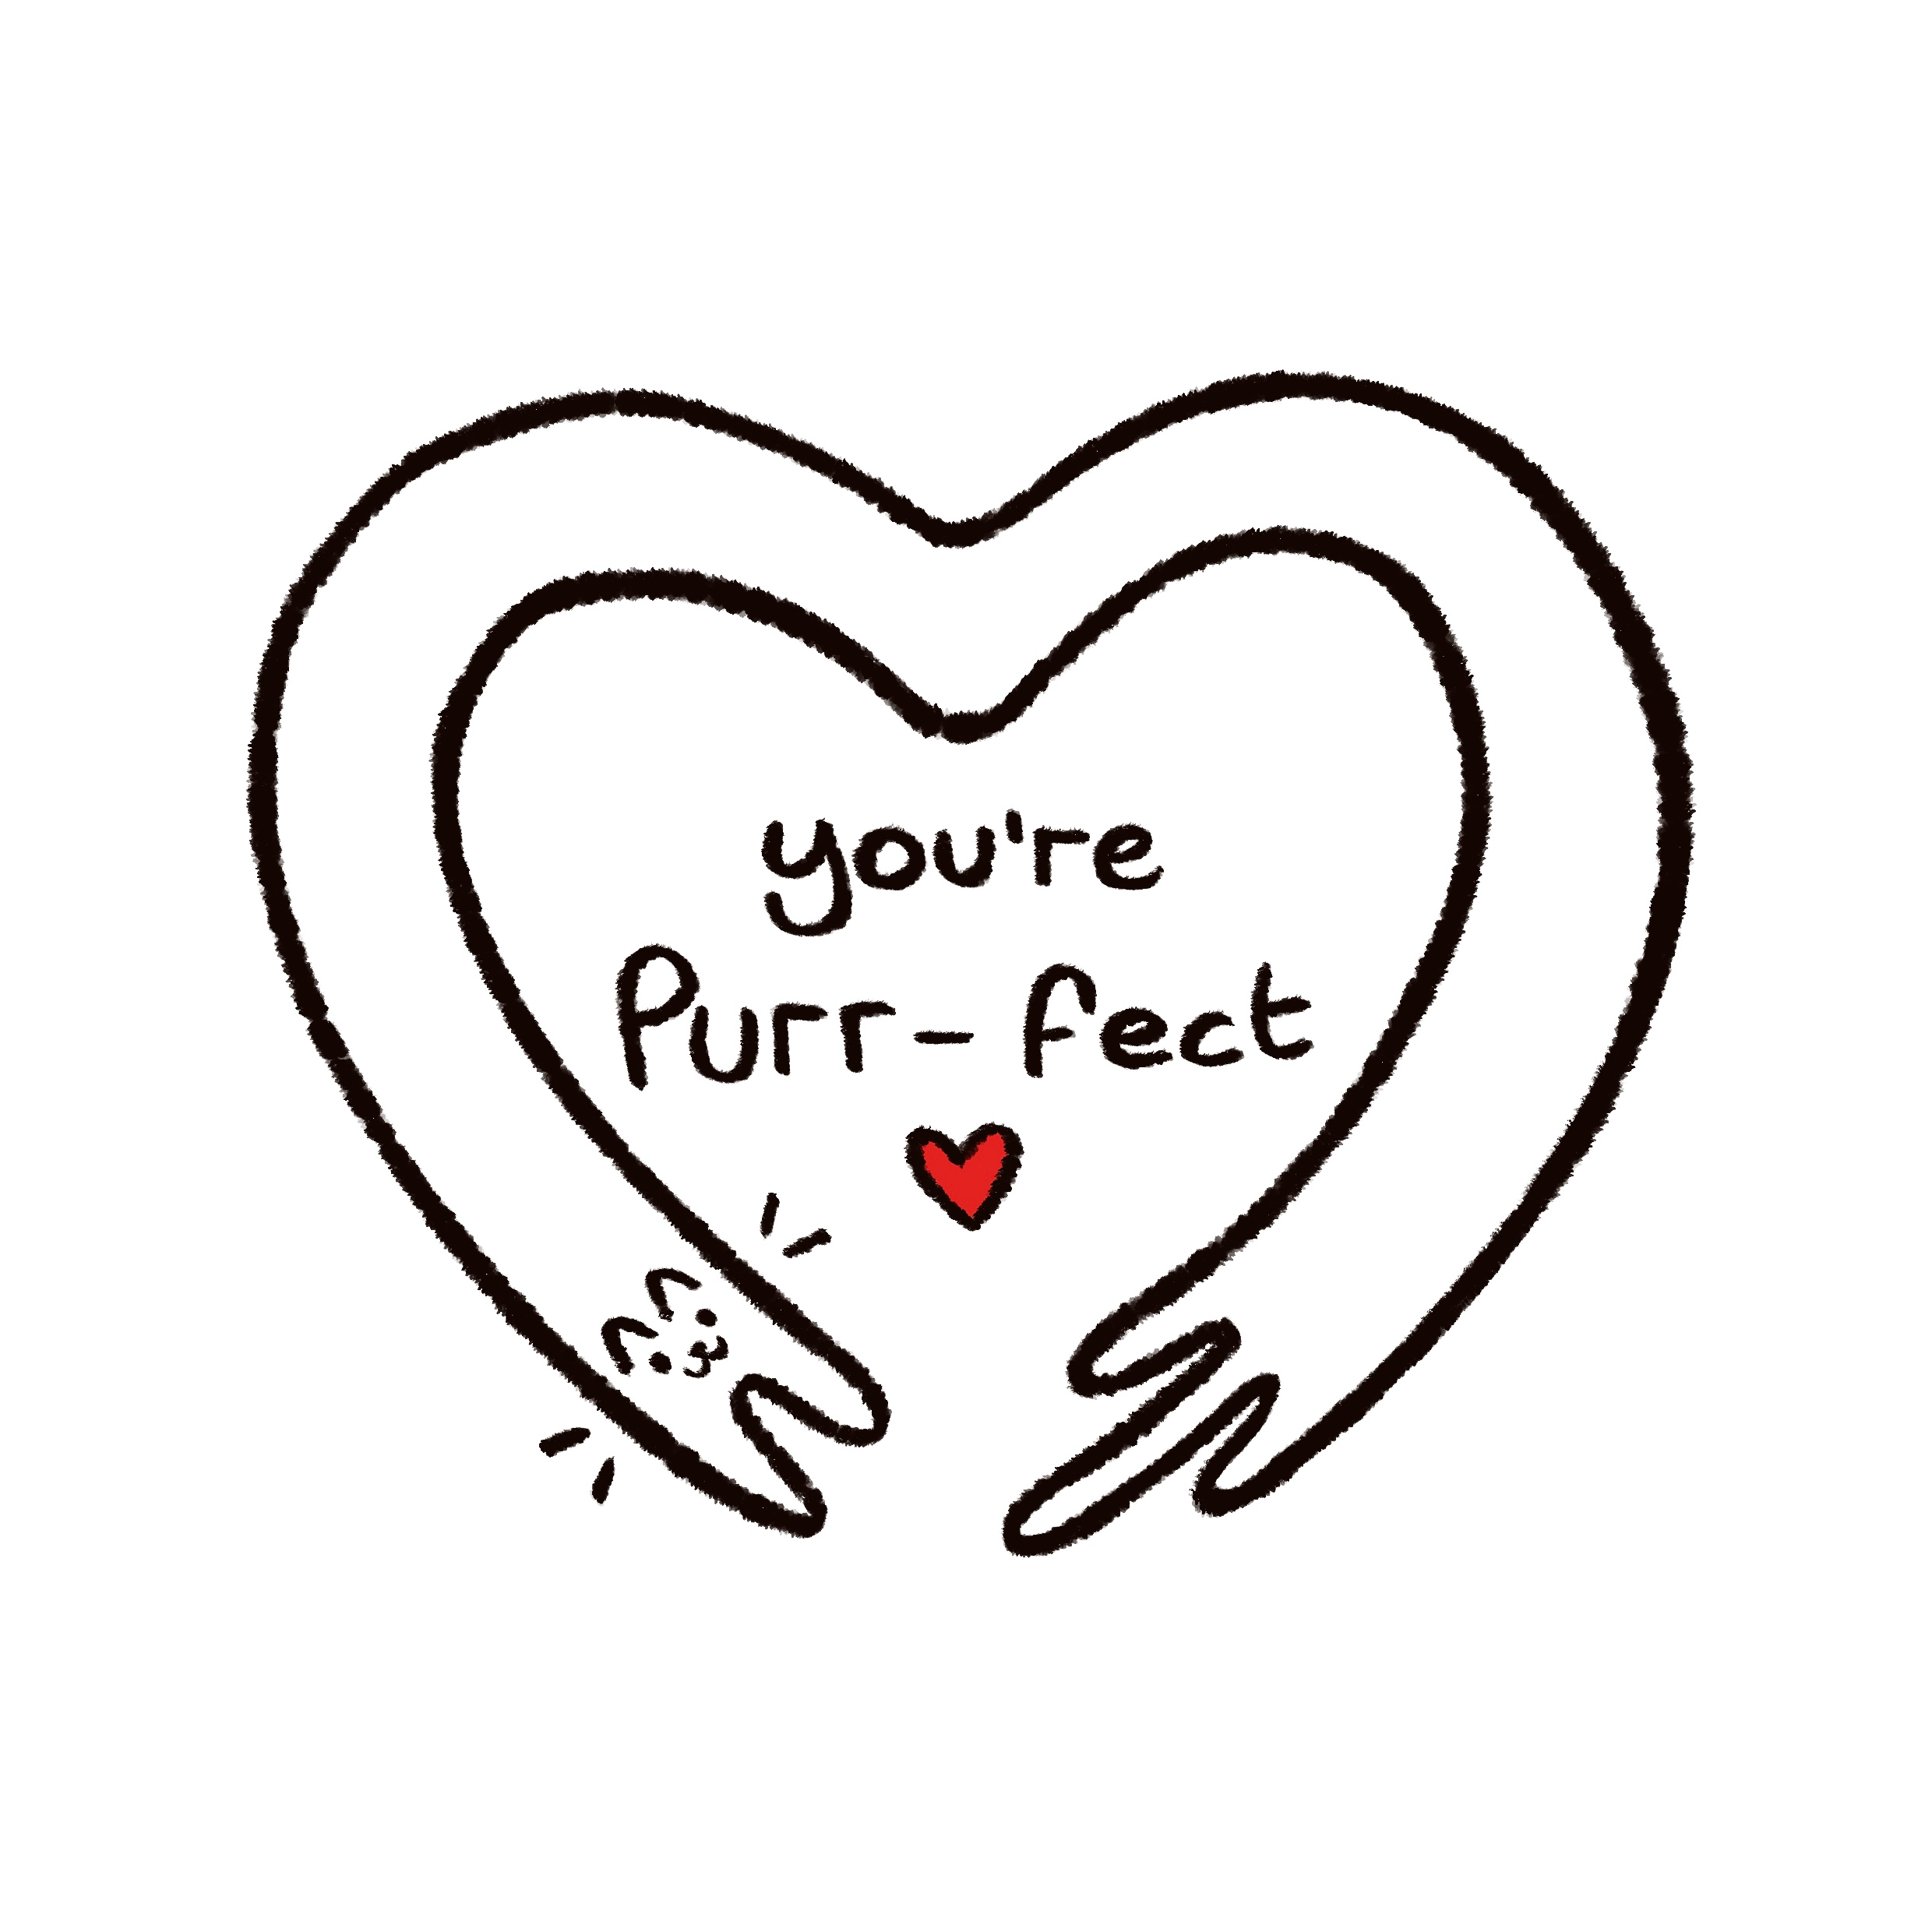 you're
Purr-fect